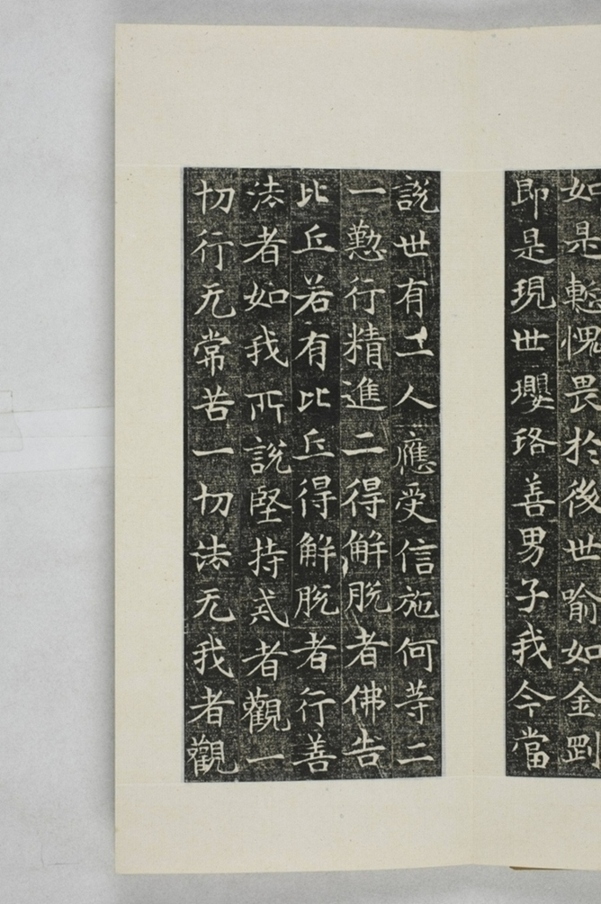 如是慙愧畏於後世喻如金剛
即是現世瓔珞善男子我今當
說世有二人應受信施何䓁二
一懃行精進二得解脫者佛告
比丘若有比丘得解脫者行善
法者如我所說堅持戒者觀一
切行无常苦一切法无我者觀